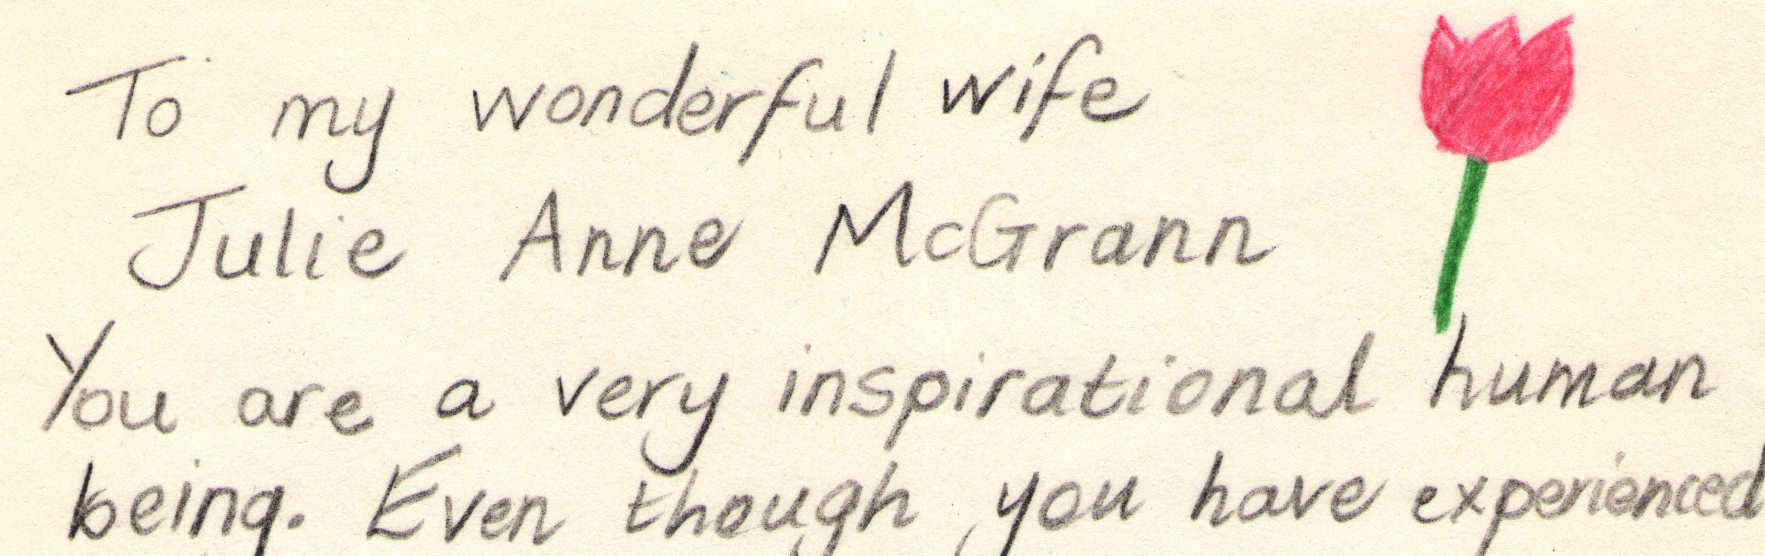 To my wonderful wife
Julie Anne McGrann
You are a very inspirational human
being. Even though you have experienced